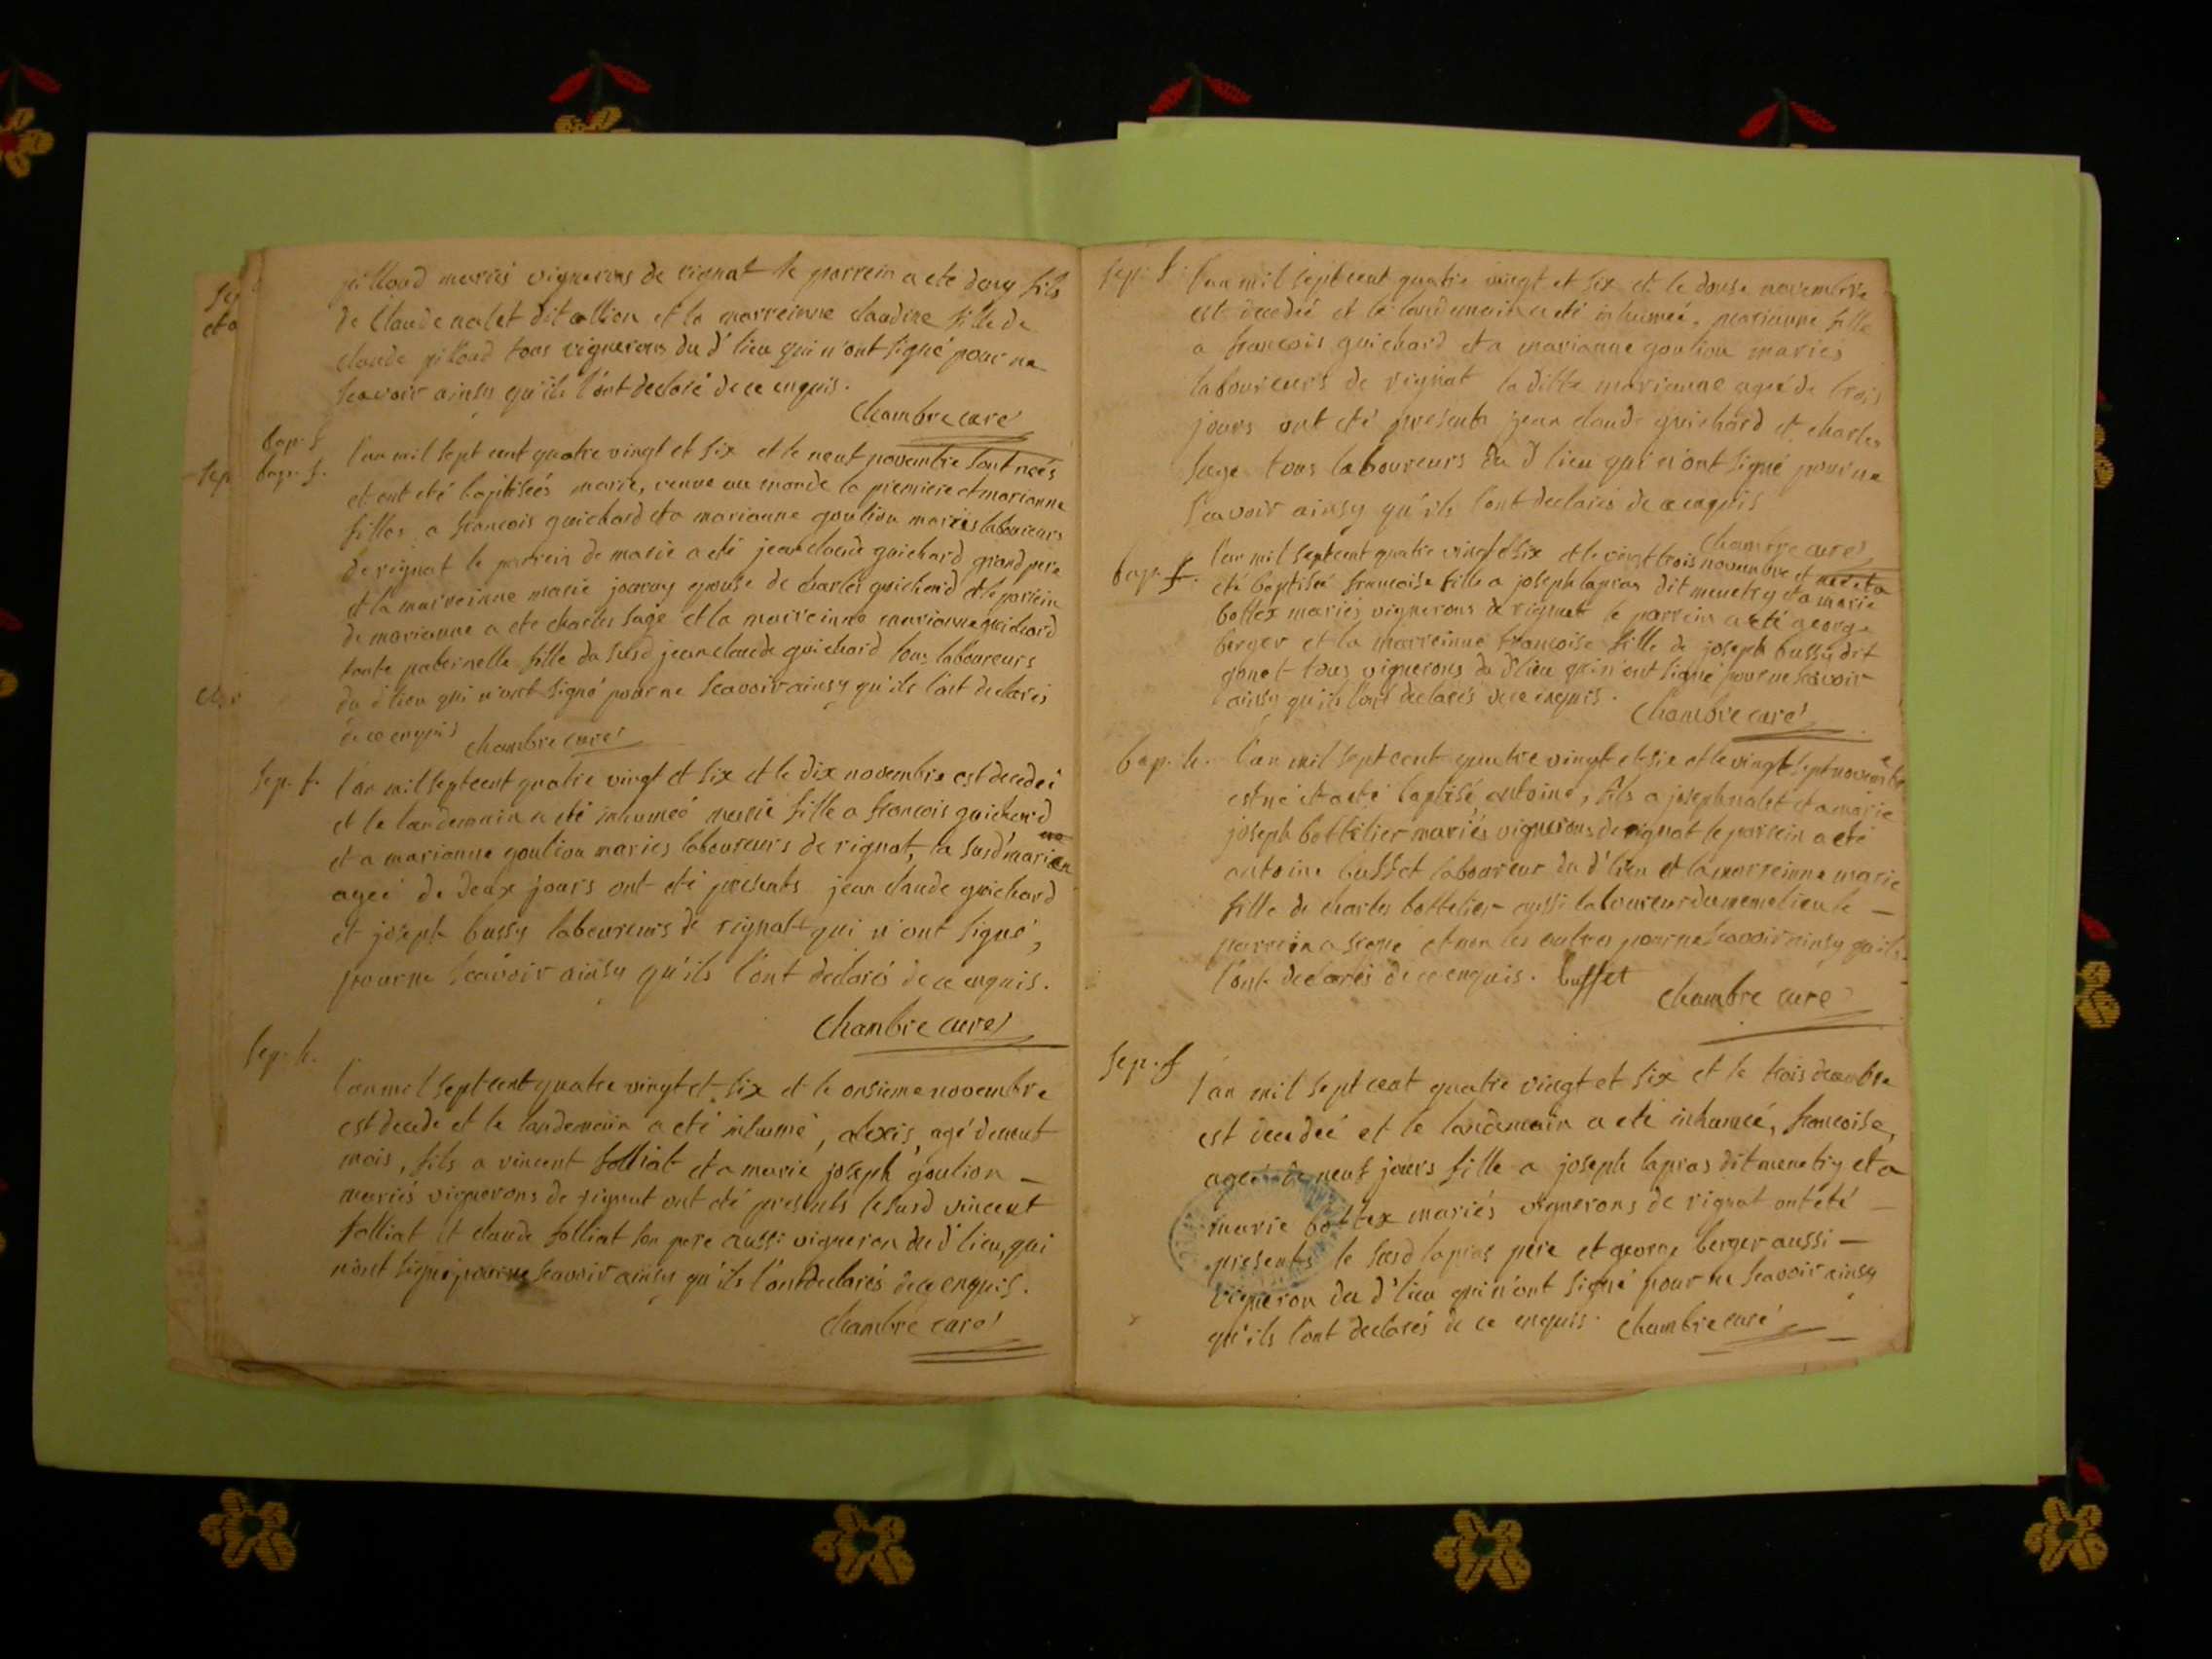 pilloud mariés vignerons de rignat le parrein a ete deny fils
de Claude nalet dit allion et la marreinne claudine fille de
claude pilloud tous vignerons du d' lieu qui n'ont signé pour ne
scavoir ainsy qu'ils l'ont declaré de ce enquis.
Chambre curé
bap. f
bap. f.
l'an mil sept cent quatre vingt et six et le neuf novembre sont neés
et ont eté baptiseés marie, venue au monde la premiere et marianne
filles a francois guichard et a marianne goulion mariés laboureurs
de rignat le parrein de marie a eté jean claude guichard grand pere
et la marreinne marie epouse de charles guichard et le parrein
de marianne a ete charles sage et la marreinne marianne guichard
tante paternelle fille du susd jean claude guichard tous laboureurs
du d lieu qui n'ont signé pour ne scavoir ainsy qu'ils l'ont declarés
de ce enquis chambre curé
Sep. f. l'an mil sept cent quatre vingt et six et le dix novembre est decedeé
et le landemain a eté inhumeé marie fille a francois guichard
et a marianne goulion mariés laboureurs de rignat, la susd' marianne
ageé de deux jours ont eté présents jean claude guichard
et joseph bussy laboureurs de rignat qui n'ont signé,
pour ne scavoir ainsy qu'ils l'ont declarés de ce enquis.
Chambre curé
Sep. h.
l'an mil sept cent quatre vingt et six et le onsieme novembre
est decedé et le landemain a eté inhumé, alexis, agé de neuf
mois, fils a vincent folliat et a marie joseph goulion -
mariés vignerons de rignat ont eté presents le susd vincent
folliat et claude folliat son pere aussi vigneron du d' lieu, qui
n'ont signé pour ne scavoir ainsy qu'ils l'ont declarés de ce enquis.
Chambre curé
sep. f. l'an mil sept cent quatre vingt et six et le douse novembre
est decedeé et le landemain a eté inhumeé, marianne fille
a francois guichard et a marianne goulion mariés
laboureurs de rignat la ditte marianne ageé de trois
jours ont eté presents jean claude guichard et charles
sage tous laboureurs du d lieu qui n'ont signé pour ne
scavoir ainsy qu'ils l'ont declarés de ce enquis
Chambre curé
bap. f. l'an mil sept cent quatre vingt et six et le vingt trois novembre est neé et a
eté baptiseé francoise fille a joseph lapras dit menetry et a marie
bottex mariés vignerons de rignat le parrein a eté george
berger et la marreinne francoise fille de joseph bussy dit
gonet tous vignerons du d' lieu qui n'ont signé pour ne scavoir
ainsy qu'ils l'ont declarés de ce enquis.
Chambre curé
bap. h. l'an mil sept cent quatre vingt et six et le vingt sept novembre
est né et a eté baptisé antoine, fils a joseph nalet et a marie
joseph bottelier mariés vignerons de rignat le parrein a eté
antoine buffet laboureur du d' lieu et la marreinne marie
fille de charles bottelier aussi laboureur du meme lieu le -
parrein a signé et non les autres pour ne scavoir ainsy qu'ils
l'ont declarés de ce enquis. buffet
Chambre curé
Sep. f
l'an mil sept cent quatre vingt et six et le trois decembre
est decedeé et le landemain a eté inhumeé, francoise,
ageé de neuf jours fille a joseph lapras dit menetry et a
marie bottex mariés vignerons de rignat ont eté -
presents le susd lapras pere et george berger aussi -
vigneron du d' lieu qui n'ont signé pour ne scavoir ainsy
qu'ils l'ont declarés de ce enquis. Chambre curé